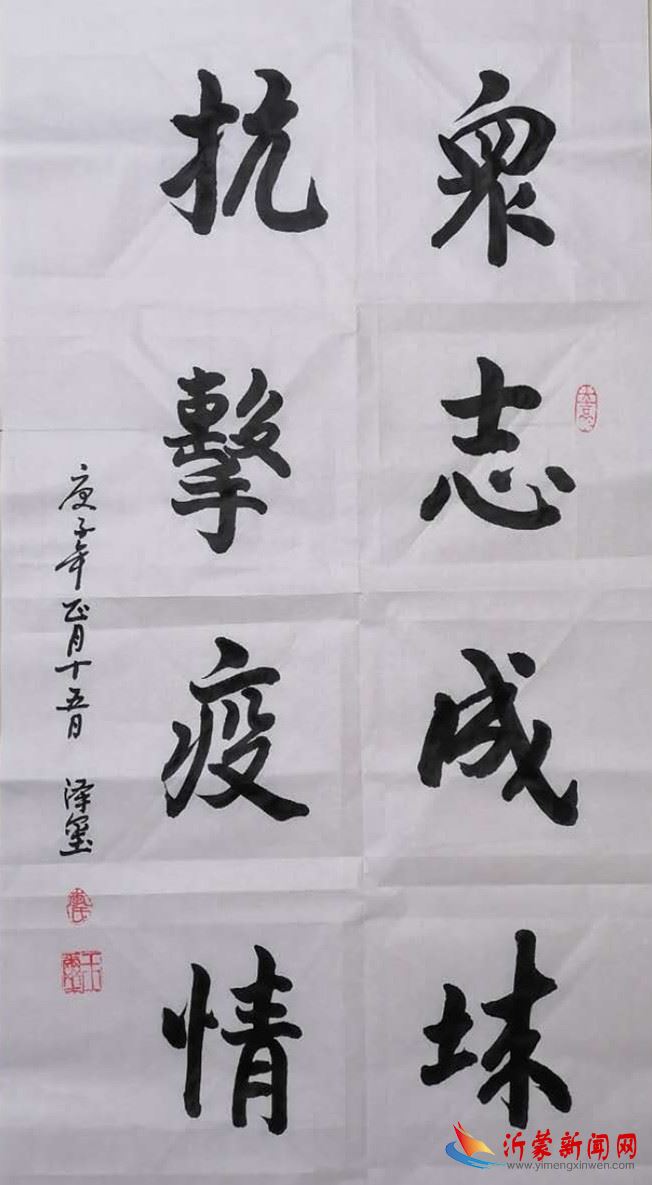 眾志成城
抗擊疫情
庚子年正月十五日 泽玺
沂蒙新闻网
www.yimengxinwen.com